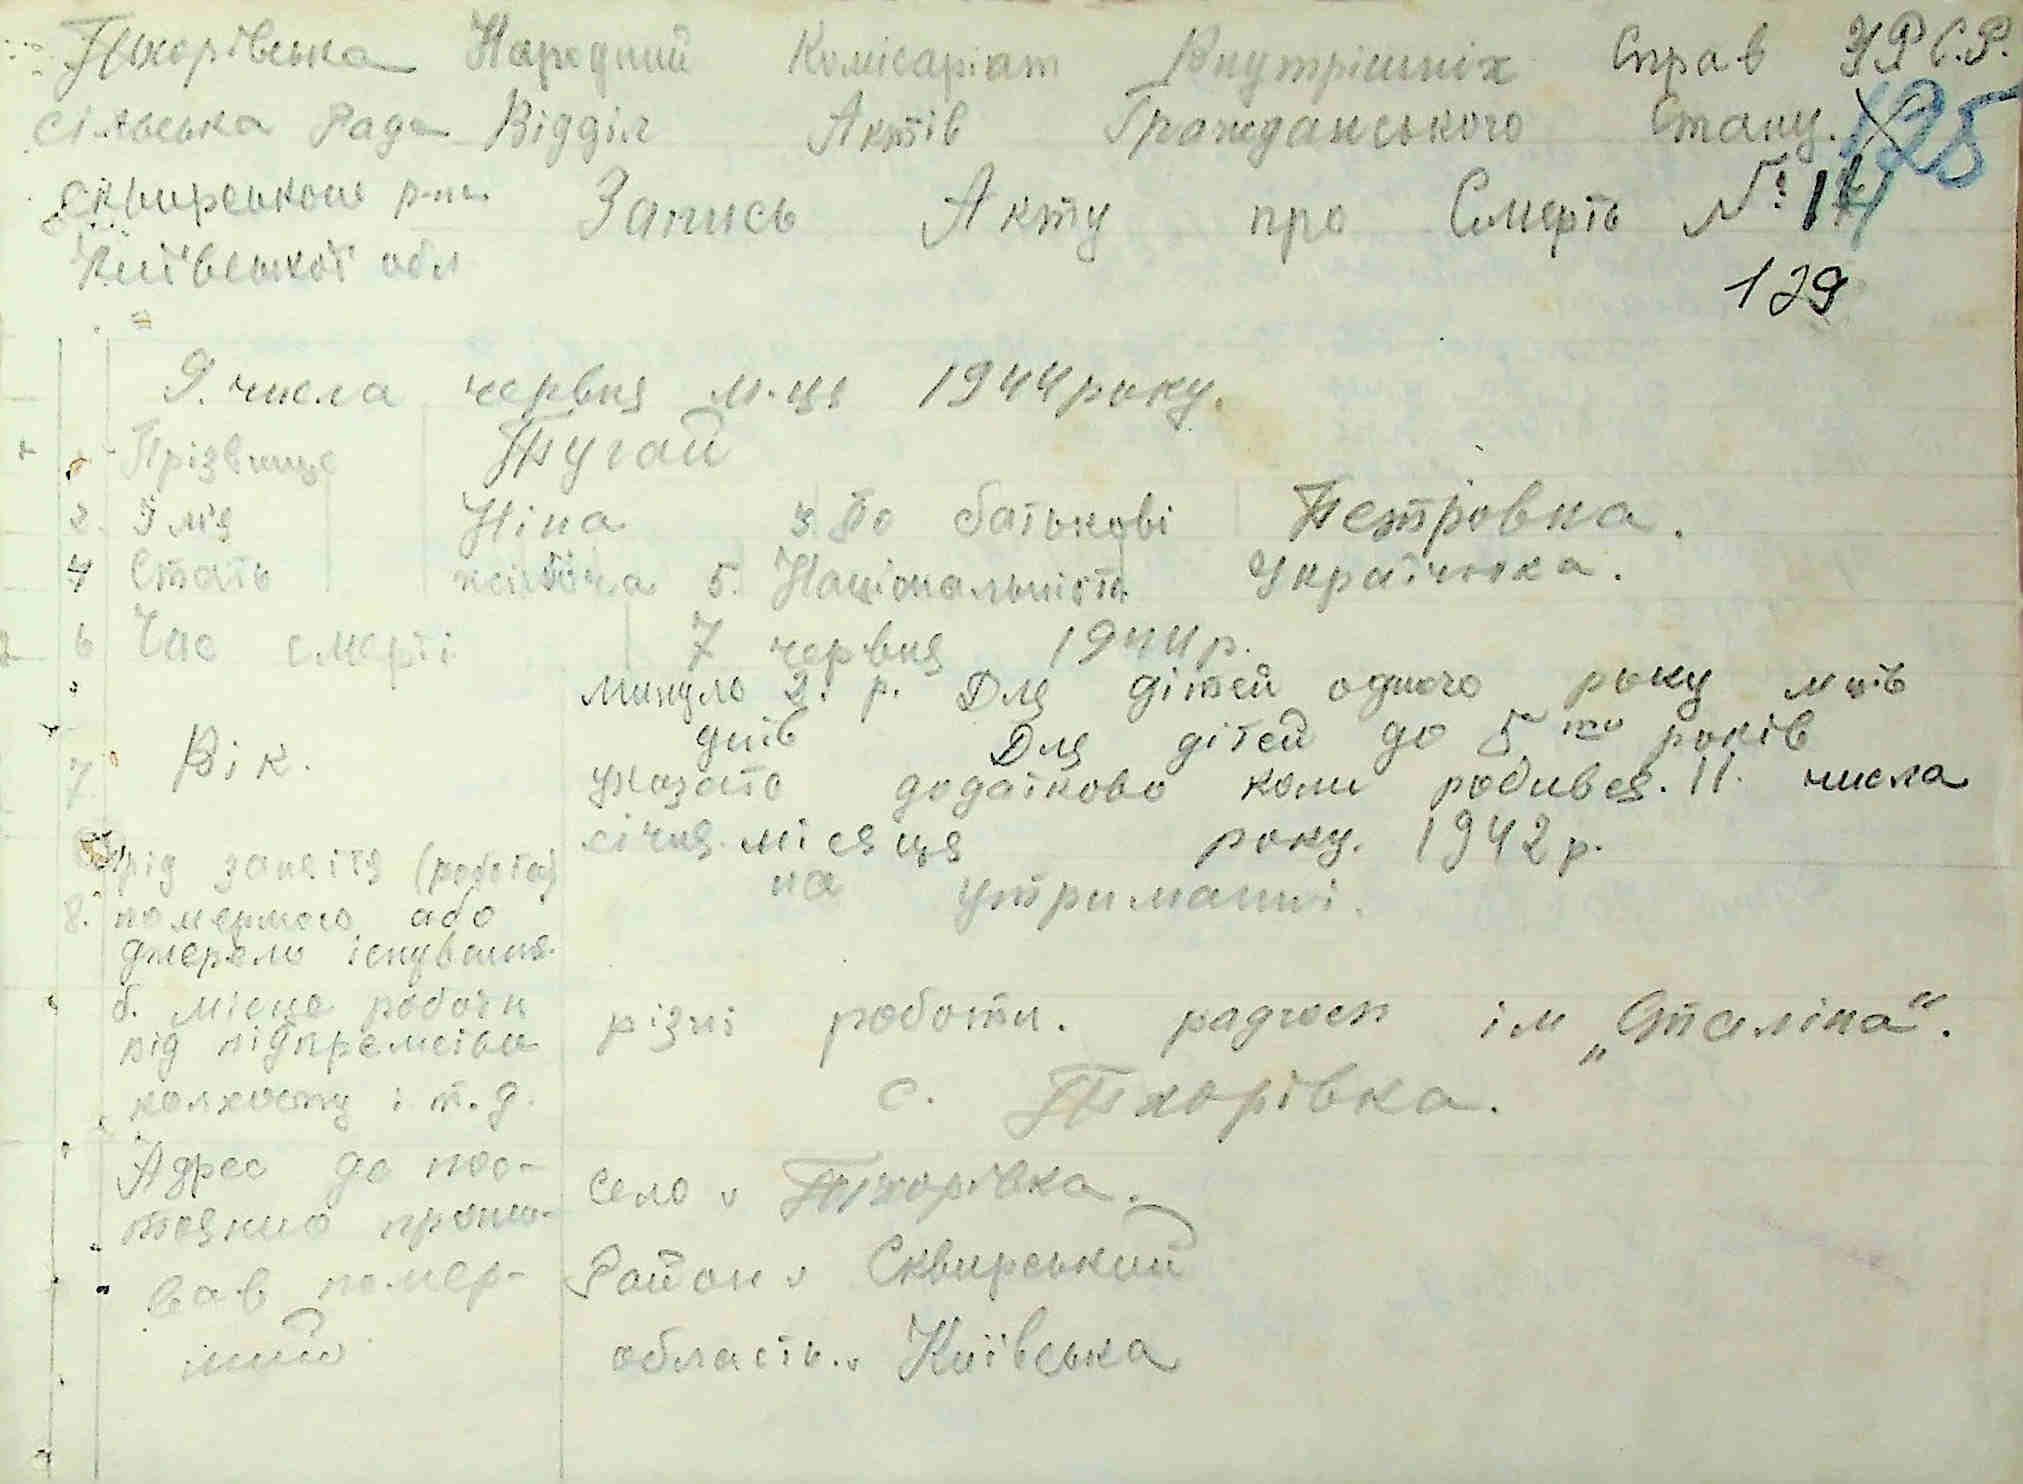 Тхорівська Народний Комісаріат Внутрішніх Справ УРСР.
сільська Рада Відділ Актів Гражданського Стану. 128
сквирського р-на. Запись Акту про Смерть № 14
Київської обл
129
9. числа червня м-ця 1944 року.
Прізвище Тугай
2. Імя Ніна 3. По батькові Петровна.
4 Стать жіноча 5. Національність Українка.
6 Час смерті 7 червня 1944 р.
минуло 2. р. Для дітей одного року м-ців
днів Для дітей до 5 то років
7. Вік. указать додатково коли родився. 11. числа
січня. місяця року. 1942 р.
рід заняття (робота) на утриманні.
8. помершого або
джерело існування.
б. місце роботи
різні роботи. радгосп ім „Сталіна".
під підпремсіва
колхозу і т. д. с. Тхорівка.
Адрес де пос-
село Тхорівка.
тоянно прожи-
вав помер- Район Сквирський
ший область. Київська